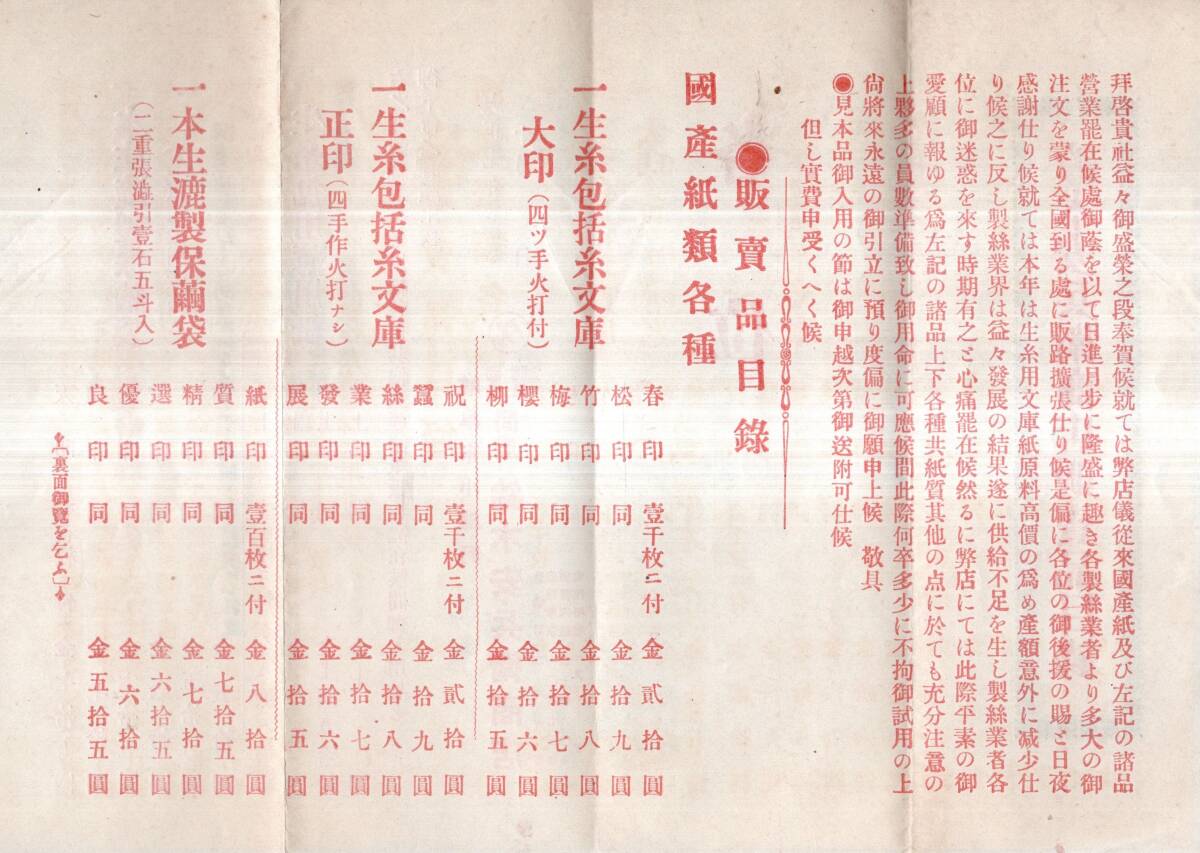 拜啓貴社益々御盛榮之段奉賀候就ては弊店儀從來國產紙及び左記の諸品
營業罷在候處御蔭を以て日進月步に隆盛に趣き各製絲業者より多大の御
注文を蒙り全國到る處に販路擴張仕り候是偏に各位の御後援の賜と日夜
感謝仕り候就ては本年は生糸用文庫紙原料高價の爲め產額意外に減少仕
り候之に反し製絲業界は益々發展の結果遂に供給不足を生し製絲業者各
位に御迷惑を來す時期有之と心痛罷在候然るに弊店にては此際平素の御
愛顧に報ゆる爲左記の諸品上下各種共紙質其他の点に於ても充分注意の
上夥多の員數準備致し御用命に可應候間此際何卒多少に不拘御試用の上
尙將來永遠の御引立に預り度偏に御願申上候 敬具
◉見本品御入用の節は御申越次第御送附可仕候
但し實費申受くへく候
◉販賣品目錄
國產紙類各種
一生糸包括糸文庫
大印(四ツ手火打付)
春印 壹千枚ニ付 金貳拾圓
松印 同 金拾九圓
竹印 同 金拾八圓
梅印 同 金拾七圓
櫻印 同 金拾六圓
柳印 同 金拾五圓
一生糸包括糸文庫
正印(四手作火打ナシ)
祝印 壹千枚ニ付 金貳拾圓
蠶印 同 金拾九圓
絲印 同 金拾八圓
業印 同 金拾七圓
發印 同 金拾六圓
展印 同 金拾五圓
一本生漉製保繭袋
(二重張澁引壹石五斗入)
紙印 壹百枚ニ付 金八拾圓
質印 同 金七拾五圓
精印 同 金七拾圓
選印 同 金六拾五圓
優印 同 金六拾圓
良印 同 金五拾五圓
〔裏面御覽を乞ふ〕